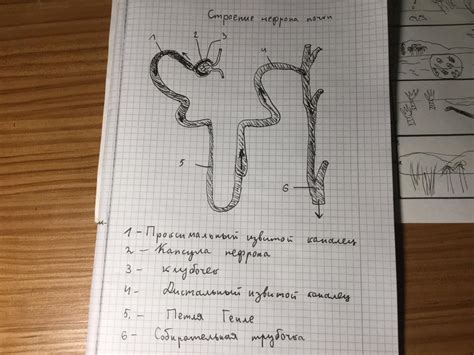 Строение нефрона почки
1 2 3 4
5 6
1 - Проксимальный извитой каналец
2 - Капсула нефрона
3 - Клубочек
4 - Дистальный извитой каналец
5. - Петля Генле
6 - Собирательная трубочка